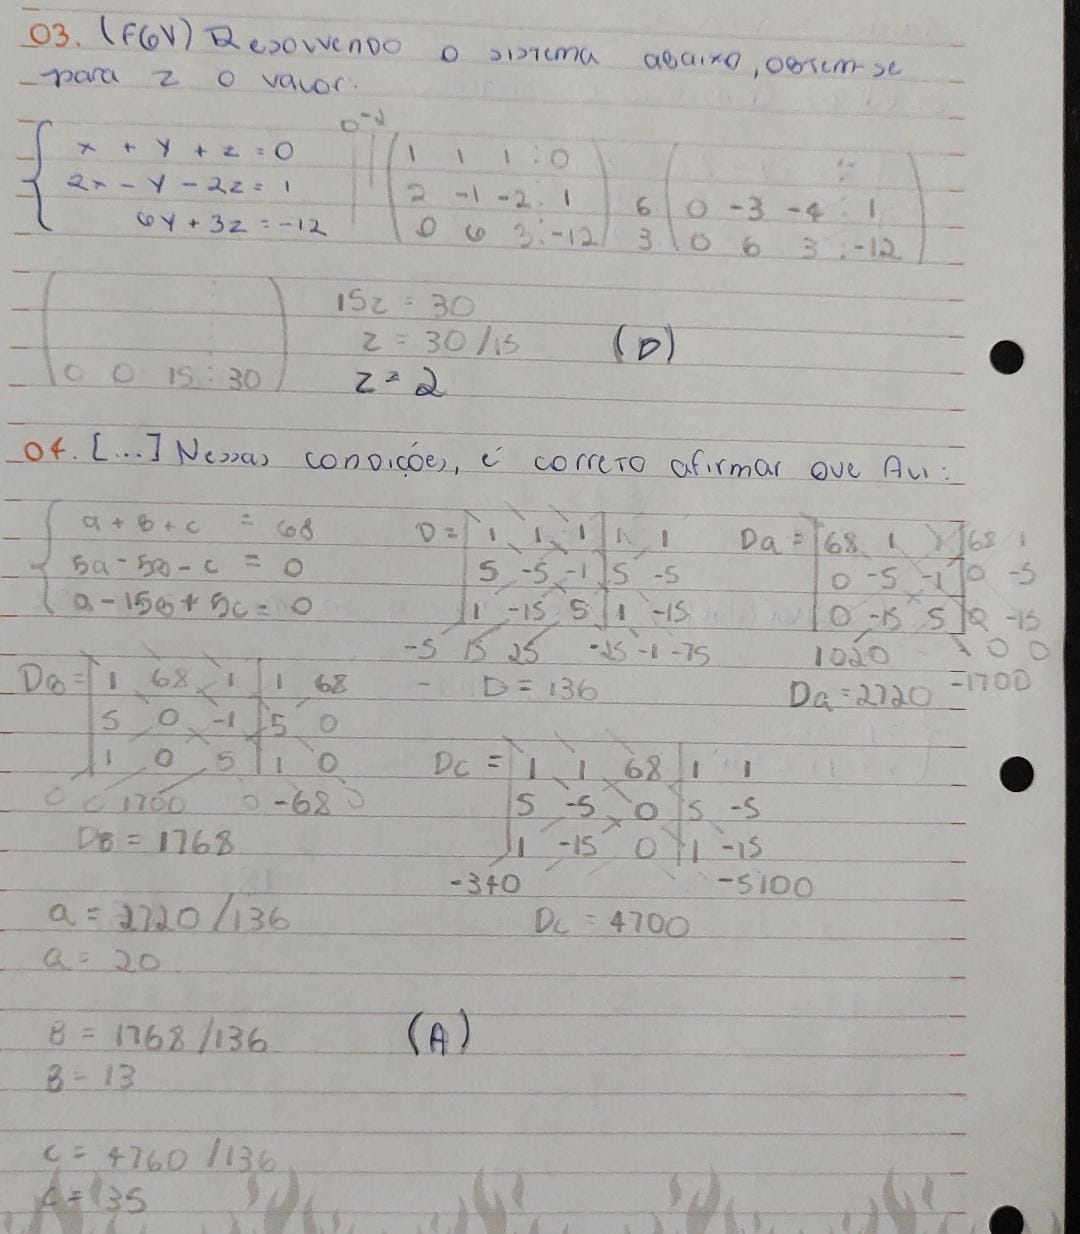 03. (FGV) Resolvendo o sistema abaixo, obtem-se
para z o valor:
x + y + z = 0
2x - y - 2z = 1
6y + 3z = -12
0 -2
1 1 1 : 0
2 -1 -2 : 1
0 6 3 : -12
6
3
:
0 -3 -4 : 1
0 6 3 : -12
0 0 15 : 30
15z = 30
z = 30/15
z = 2
(D)
04. [...] Nessas condições, é correto afirmar que Avi:
a + b + c = 68
5a - 5b - c = 0
a - 15b + 5c = 0
D = 1 1 1 1 1
5 -5 -1 5 -5
1 -15 5 1 -15
-5 15 25 -25 -1 -75
- D = 136
Da = 68 1 1 68 1
0 -5 -1 0 -5
0 -15 5 0 -15
1020 0 0
Da = 2720 -1700
DB = 1 68 1 1 68
5 0 -1 5 0
1 0 5 1 0
0 0 1700 0 -68 0
DB = 1768
Dc = 1 1 68 1 1
5 -5 0 5 -5
1 -15 0 1 -15
-340 -5100
Dc = 4700
a = 2720/136
a = 20
B = 1768/136
B = 13
(A)
c = 4760/136
c = 35